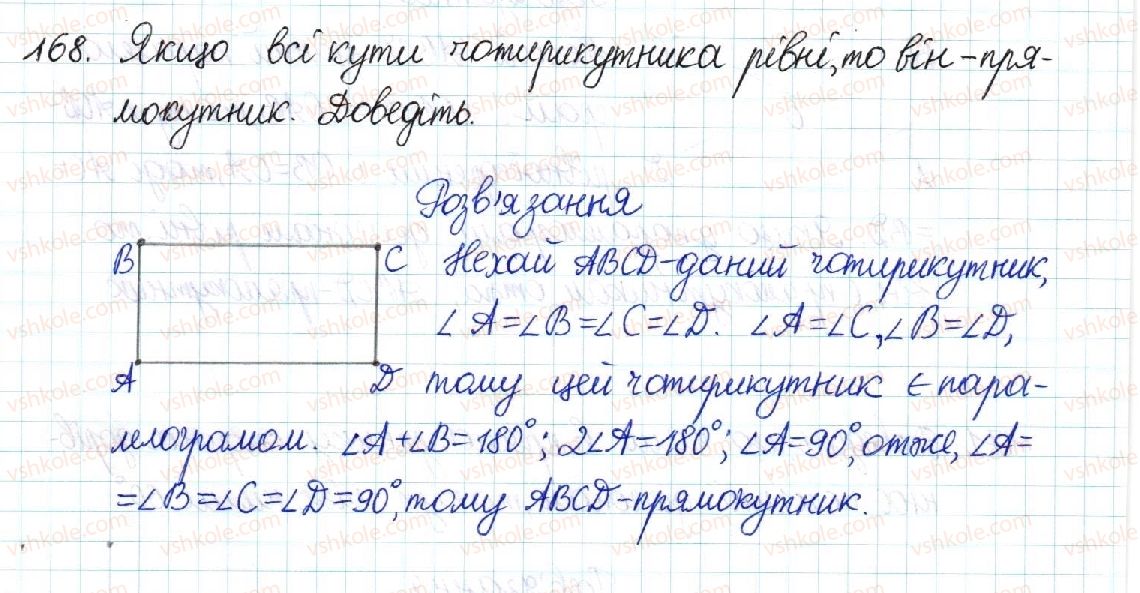 168. Якщо всі кути чотирикутника рівні, то він - пря-
мокутник. Доведіть.
Розв'язання
B C Нехай ABCD - даний чотирикутник,
∠A = ∠B = ∠C = ∠D. ∠A = ∠C, ∠B = ∠D,
A D тому цей чотирикутник є пара-
лелограмом. ∠A + ∠B = 180°; 2∠A = 180°; ∠A = 90°, отже, ∠A =
= ∠B = ∠C = ∠D = 90°, тому ABCD - прямокутник.
vshkole.com